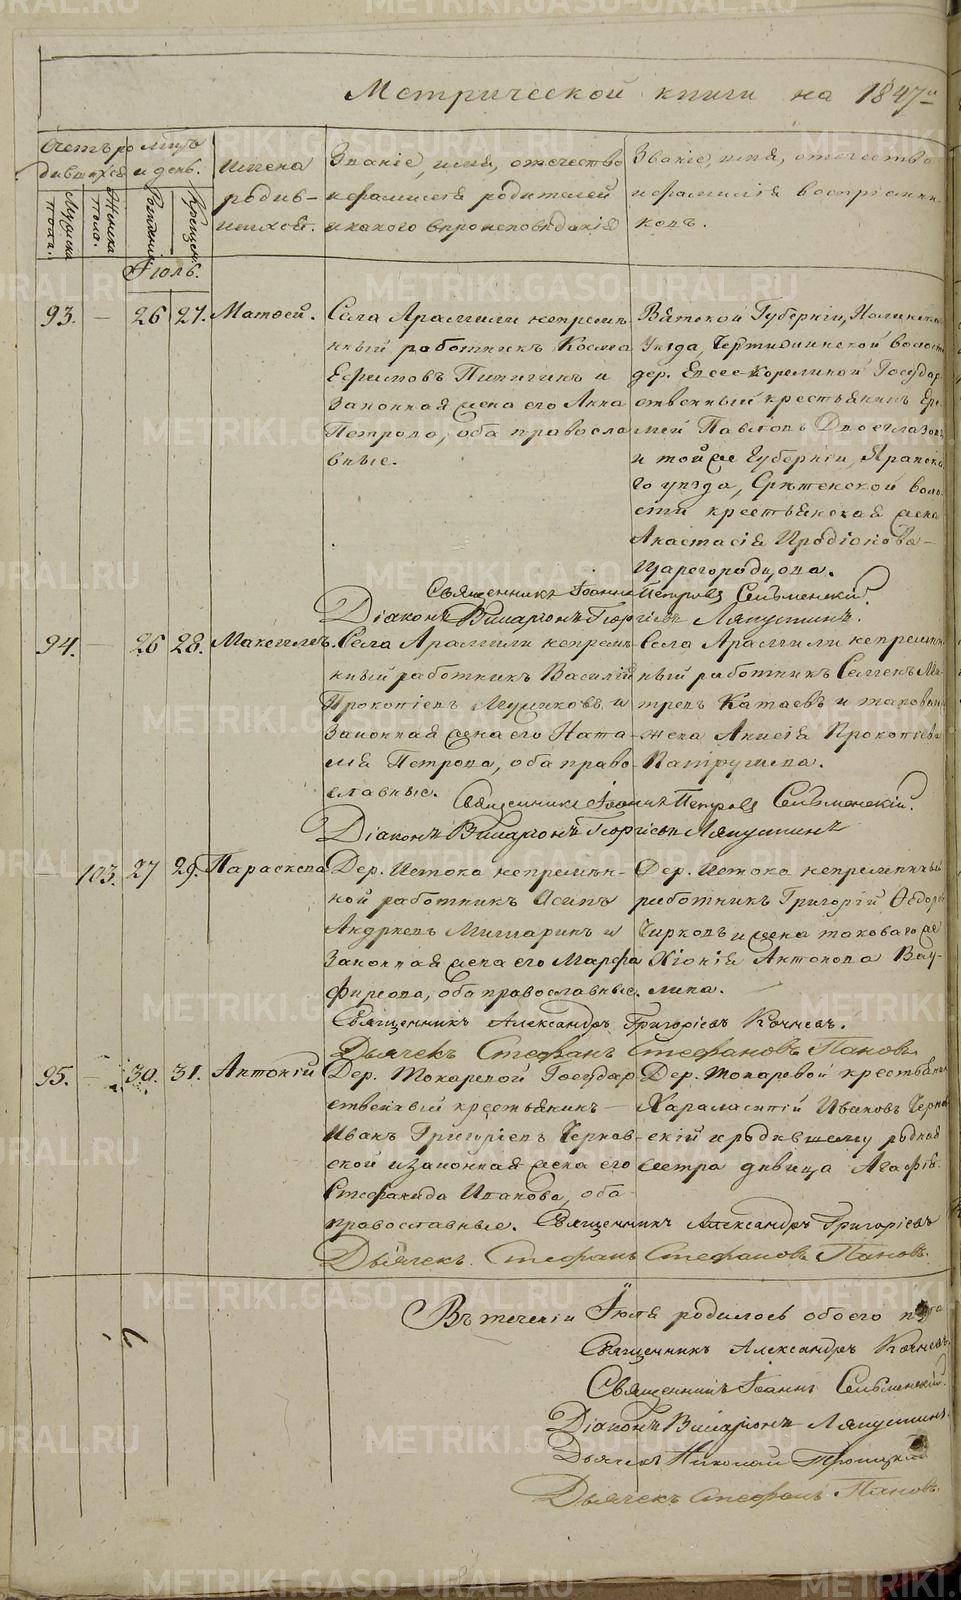 Метрической книги на 1847й
Счетъ родившихся
Мужеска пола.
Женска пола.
Мѣсяцъ и день.
Рожденія
Крещен.
Имена родившихся.
Званіе, имя, отечество и фамилія родителей и какого вѣроисповѣданія
Званіе, имя, отечество и фамилія воспріемниковъ.
Іюль.
93. — 26 27. Матѳей.
Села Арамили непремѣн-
ный работникъ Косма
Ефимовъ Питигинъ и
законная жена его Анна
Петрова, оба правосла-
вные.
Вятской Губерніи, Нолинскаго
Уѣзда, волости
дер. Государ-
ственный крестьянинъ Ере-
мей Павловъ Двоеглазовъ
и той же Губерніи, Яранска-
го уѣзда, Срѣтенской воло-
сти крестьянская жена
Анастасія Иродіонова
Царегородцова.
Священникъ Іоаннъ Петровъ Сельменскій.
Діаконъ Иларіонъ Георгіевъ Ляпустинъ.
94. — 26 28. Максимъ.
Села Арамили непремѣн-
ный работникъ Василій
Прокопіевъ Мушковъ и
законная жена его Ната-
лія Петрова, оба право-
славные.
Села Арамили непремѣн-
ный работникъ Семенъ Ми-
тревъ Катаевъ и
жена Анисія Прокопіева
Патрушева.
Священникъ Іоаннъ Петровъ Сельменскій.
Діаконъ Иларіонъ Георгіевъ Ляпустинъ
— 103. 27 29. Параскева
Дер. Истока непремѣн-
ной работникъ Осипъ
Андреевъ Мишаринъ и
законная жена его Марфа
оба православные.
Дер. Истока непремѣнный
работникъ Григорій Ѳедоровъ
Чирковъ и жена таковаго же
Хіонія Антонова Вау-
лина.
Священникъ Александръ Григоріевъ Кочневъ.
Дьячекъ Стефанъ Стефановъ Пановъ.
95. — 30. 31. Антоній
Дер. Токаревой Государ-
ственный крестьянинъ
Иванъ Григоріевъ Чернав-
ской и законная жена его
Стефанида Иванова, оба
православные.
Дер. Токаревой крестьянинъ
Харалампій Ивановъ Чернав-
скій и родившему родная
сестра дѣвица Агафія.
Священникъ Александръ Григоріевъ
Дьячекъ Стефанъ Стефановъ Пановъ.
Въ теченіи Іюля родилось обоего пола
Священникъ Александръ Кочневъ.
Священникъ Іоаннъ Сельменскій.
Діаконъ Иларіонъ Ляпустинъ.
Дьячекъ Николай Троицкій
Дьячекъ Стефанъ Пановъ.
METRIKI.GASO-URAL.RU